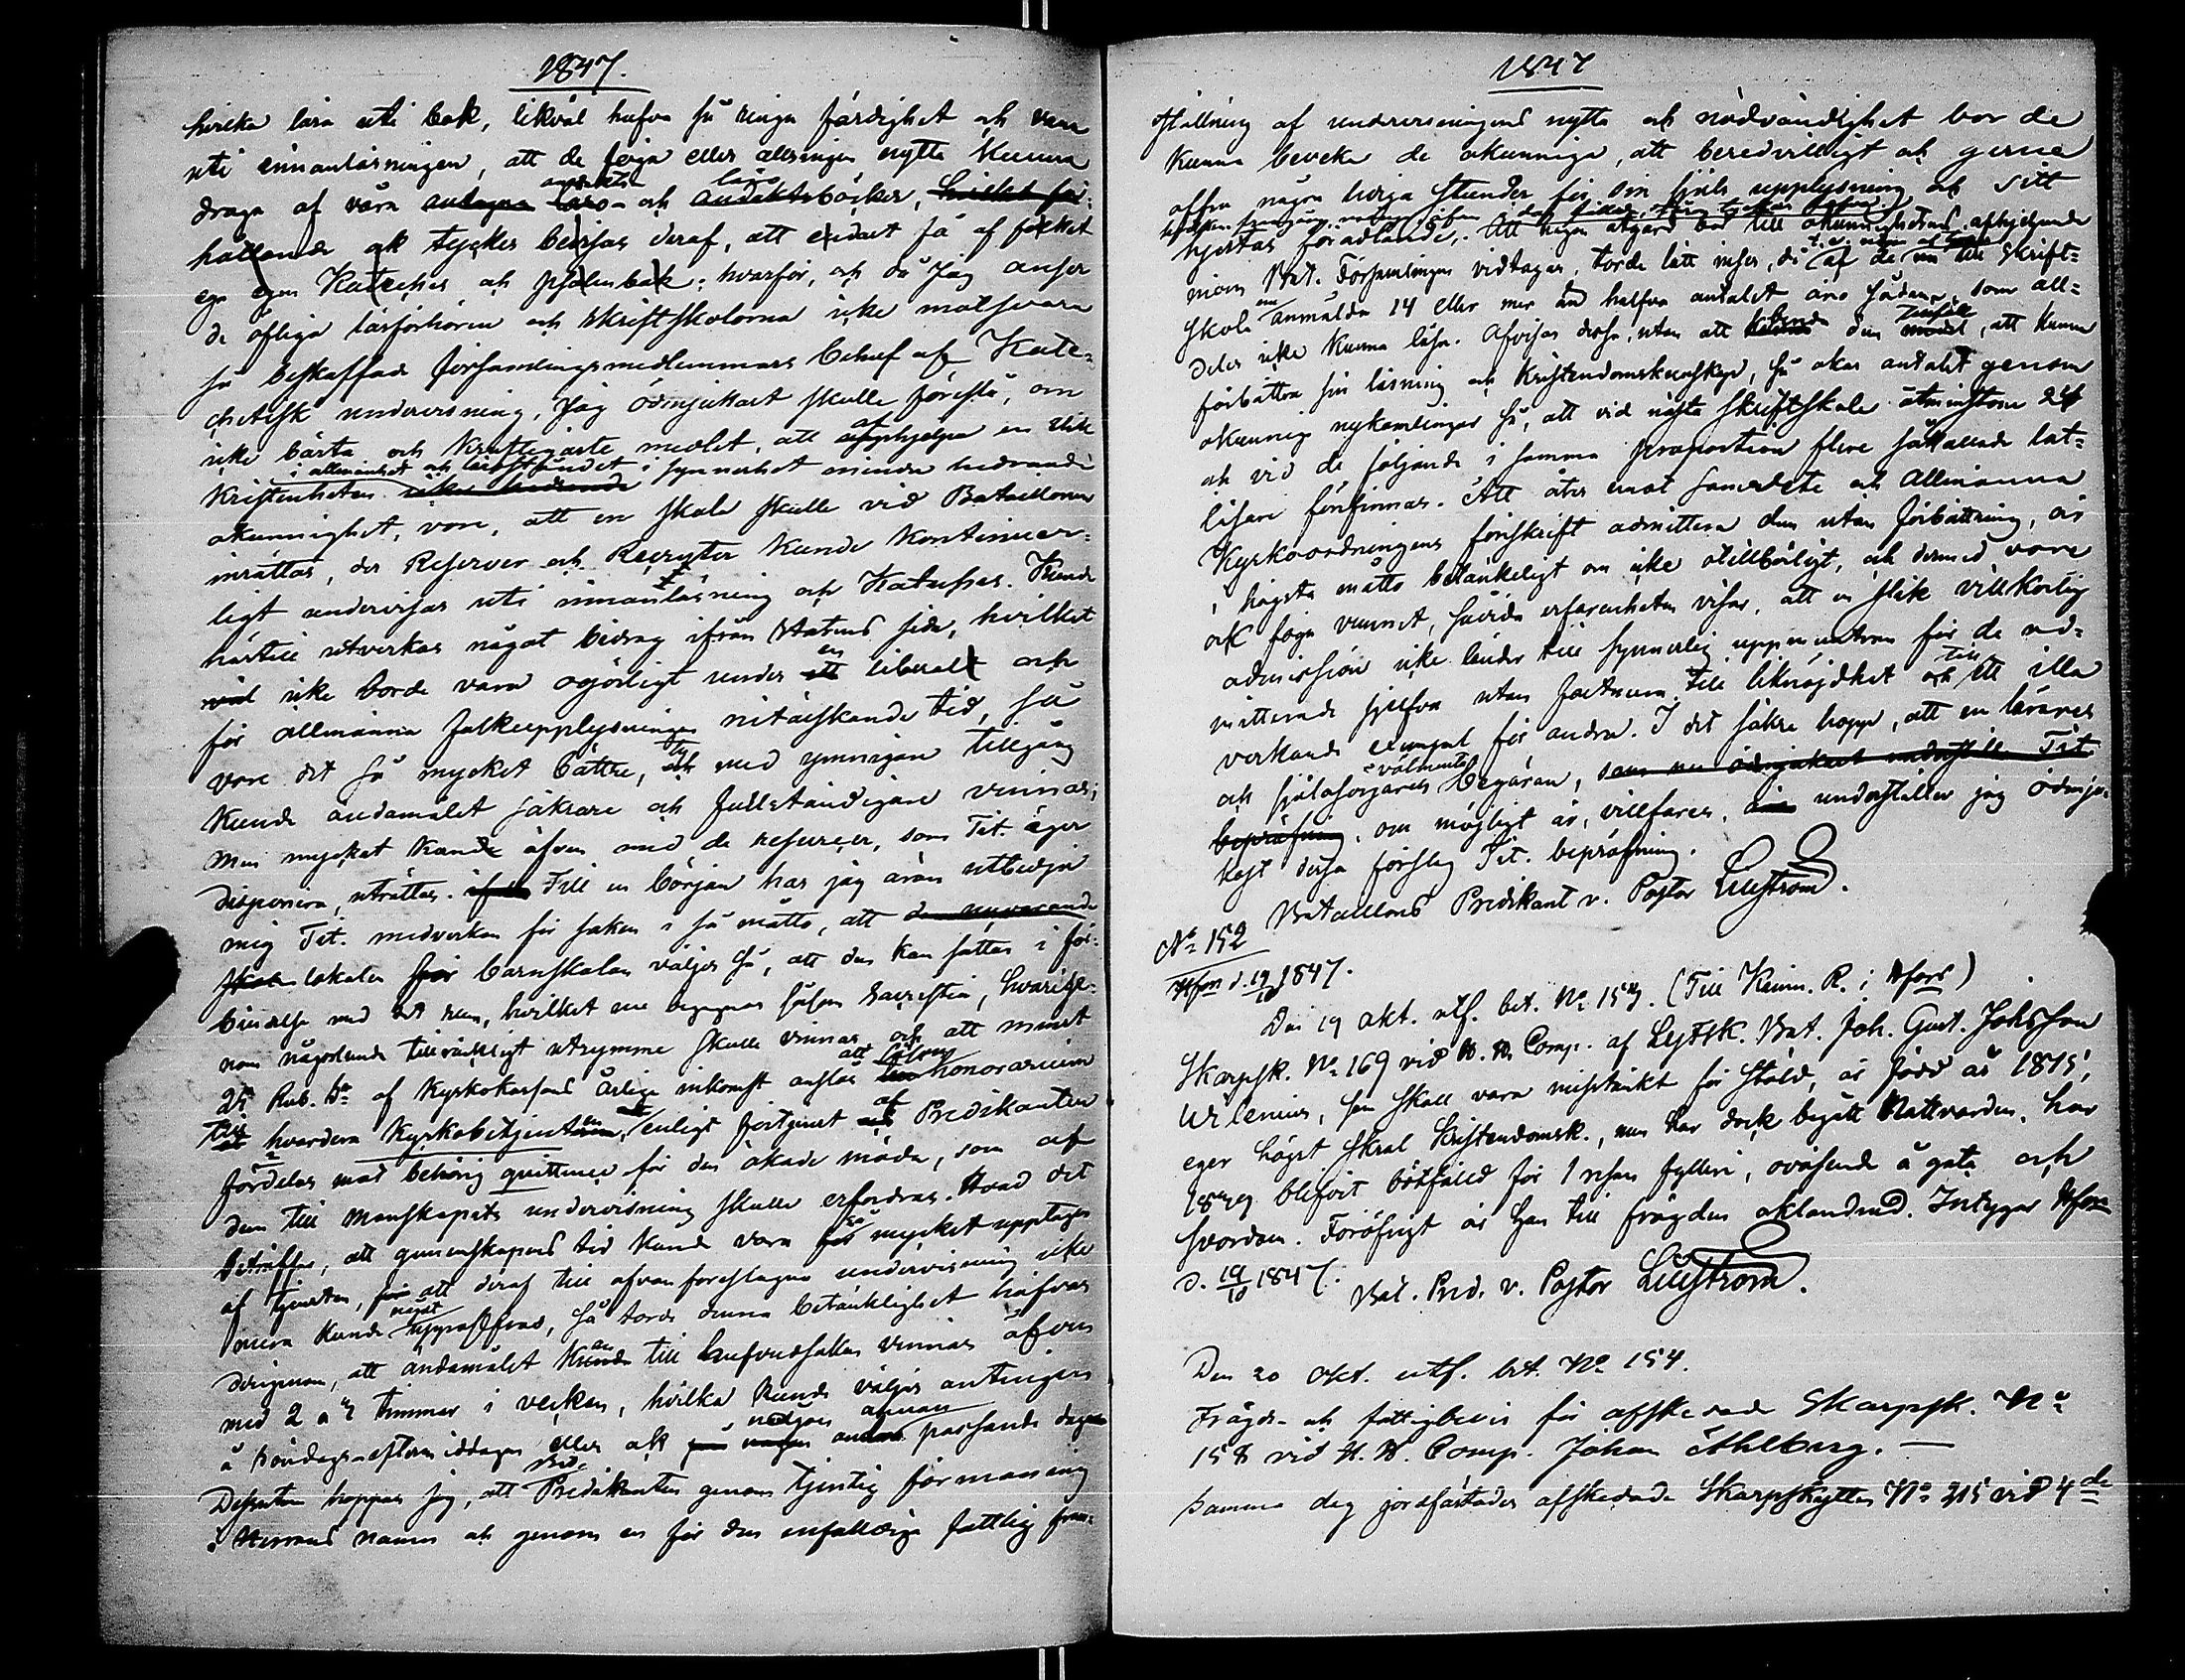 1847.
hvilka lära uti bok, likväl hafva så ringa färdighet och vana
uti innanläsningen, att de föga eller alsingen nytta kunna
draga af våra andakts- och läroböcker,
hållande ock tyckes bevisas deraf, att endast få af folket
ega egen Kateches och psalmbok; hvarför, och då jag anser
de öfliga läsförhören och skriftskolorna icke motsvara
så beskaffade församlingsmedlemmars behof af Kate-
chetisk undervisning, jag ödmjukast skulle föreslå, om
icke bästa och kraftigaste medlet, att afhjelpa en slik
i allmänhet och
Kristenheten i synnerhet mindre hedrande
okunnighet, vore, att en skola skulle vid Bataillonen
inrättas, der Reserver och Recryter kunde kontinuer-
ligt undervisas uti innanläsning och Kateches. Kunde
härtill utverkas något bidrag ifrån Statens sida, hvilket
icke borde vara ogörligt under en liberal och
för allmänna folkupplysningen nitälskande tid, så
vore det så mycket bättre, ty med ymnigare tillgång
kunde ändamålet säkrare och fullständigare vinnas;
men mycket kan äfven med de resurcer, som Tit. äger
disponera, uträttas. Till en början har jag äran utbedja
mig Tit. medverkan för saken i så måtto, att
lokalen för barnskolan väljes så, att den kan sättas i för-
bindelse med det rum, hvilket nu begagnas såsom Sacristia, hvarige-
nom någorlunda tillräckligt utrymme skulle vinnas och att minst
25 Rub. Sr af Kyrkokassans årliga inkomst anslås att såsom honorarium
till hvardera Kyrkobetjenten, enligt förtjenst af Predikanten
fördelas mot behörig quittence för den ökade möda, som af
dem till manskapets undervisning skulle erfordras. Hvad det
beträffar, att gemenskapens tid kunde vara så mycket upptagen
af tjensten, att deraf till ofvanföreslagna undervisning icke
mera kunde något uppoffras, så torde denna betänklighet häfvas
derigenom, att ändamålet kan till hufvudsaken vinnas äfven
med 2 a 3 timmar i veckan, hvilka kunde väljas antingen
å Söndags-eftermiddagen eller ock någon annan passande dag
Dessutom hoppas jag, att Predikanten genom tjenlig förmaning
i Herrans namn och genom en för den enfaldiga fattlig fram-
1847
ställning af undervisningens nytta och nödvändighet bör de
kunna beveka de okunniga, att beredvilligt och gerna
offra några lediga stunder för sin själs upplysning och sitt
hjertas förädlande. Att någon åtgärd bör till okunnighetens afhjelpande
inom Bat. Församlingen vidtagas, torde lätt inses, då af de till skrift-
skola anmälda 14 eller mer än halfva antalet äro sådane, som all-
deles icke kunna läsa. Afvisas dessa, utan att den, att kunna
förbättra sin läsning och Kristendomskunskap, så ökas antalet genom
okunniga nykomlingar så, att vid nästa skriftskola åtminstone 24
och vid de följande i samma proportion flere såkallade lat-
läsare förefinnas. Att åter emot samvete och Allmänna
Kyrkoordningens föreskrift admittera dem utan förbättring, är
i högsta måtto betänkeligt om icke otillbörligt, och dermed vore
ock föga vunnet, såvida erfarenheten visar, att en slik villkorlig
admission icke länder till synnerlig uppmuntran för de ad-
mitterade sjelfva utan fastmera till liknöjdhet och till ett illa
verkande exempel för andra. I det säkra hopp, att en lärares
och själasörjares välmenta begäran,
om möjligt är, villfares, underställer jag ödmju-
kast dessa förslag Tit. bepröfning.
Bataillons Predikant v. Pastor Lillström.
No 152
Hfors d. 19/10 1847.
Den 19 Okt. utf. bet. No 153. (Till Kämn. R. i Hfors)
Skarpsk. No 169 vid Comp. af Lif Fsk. Bat. Joh. Gust. Johsson
Urlenius, som skall vara misstänkt för stöld, är född år 1815,
eger högst skral Kristendomsk., men har dock begått Nattvarden, har
blifvit bötfälld för 1 resan fylleri, oväsende å gata och
svordom. Föröfrigt är han till frägden oklandrad. Intygar Hfors
d. 19/10 1847. Bat. Pred. v. Pastor Lillström.
Den 20 Okt. utf. bet. No 154.
Frägde- och fattigbevis för afskedade Skarpsk. No
158 vid Comp. Johan Ahlberg. —
Samma dag jordfästades afskedade Skarpskytten No 315 vid 4de